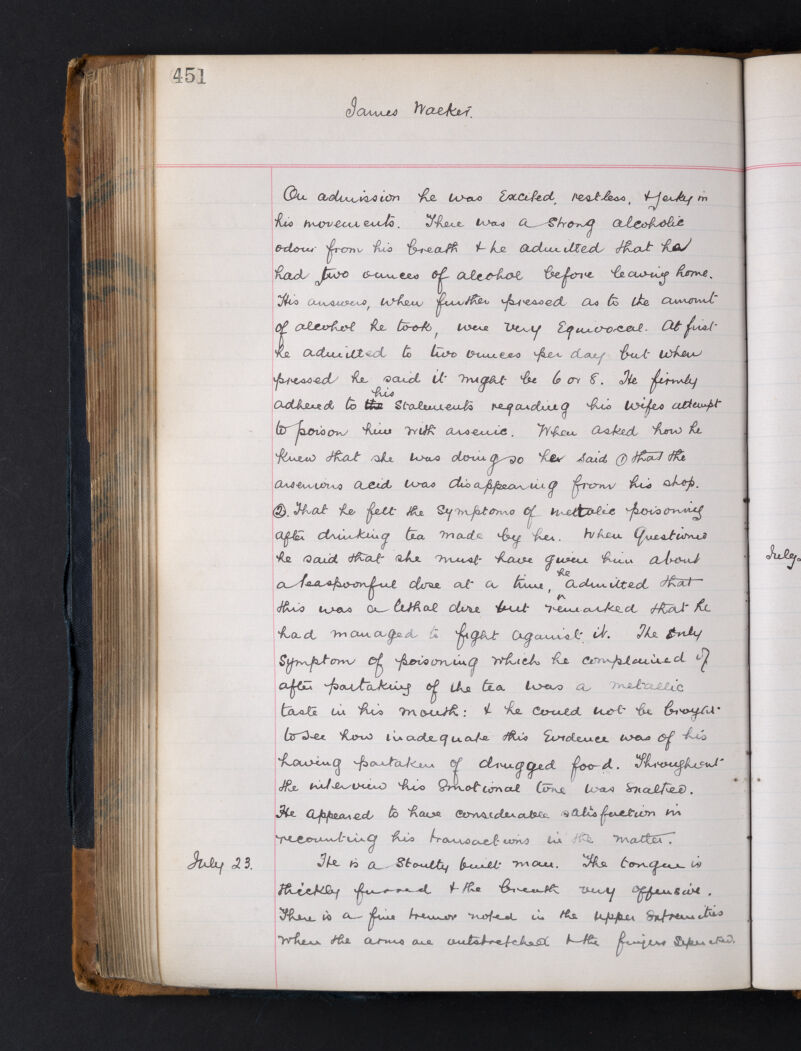 451
James Walker.
On admission he was Excited, restless, & jerky in
his movements. There was a Strong alcoholic
odour from his breath & he admitted that he
had two ounces of alcohol before leaving home.
His answers, when further pressed as to the amount
of alcohol he took, were very Equivocal. At first
he admitted to two ounces per day but when
pressed he said it might be 6 or 8. He firmly
adhered to the his Statements regarding his wifes attempt
to poison him with arsenic. When asked how he
knew that she was doing so he said ① that the
arsenious acid was disappearing from his shop.
②. That he felt the Symptoms of metallic poisoning
after drinking tea made by her. When Questioned
he said that she must have given him about
a teaspoonful dose at a time, he admitted that
this was a lethal dose but remarked that he
had managed to fight against it. The only
Symptom of poisoning which he complained of
after partaking of the tea was a metallic
taste in his mouth: & he could not be brought
to see how inadequate this Evidence was of his
having partaken of drugged food. Throughout
the interview his Emotional tone was Exalted.
He appeared to have considerable satisfaction in
recounting his transactions in the matter.
July 23. He is a Stoutly built man. The tongue is
thickly furred & the breath very offensive.
There is a fine tremor noted in the upper Extremities
when the arms are outstretched & the fingers Separated.
July